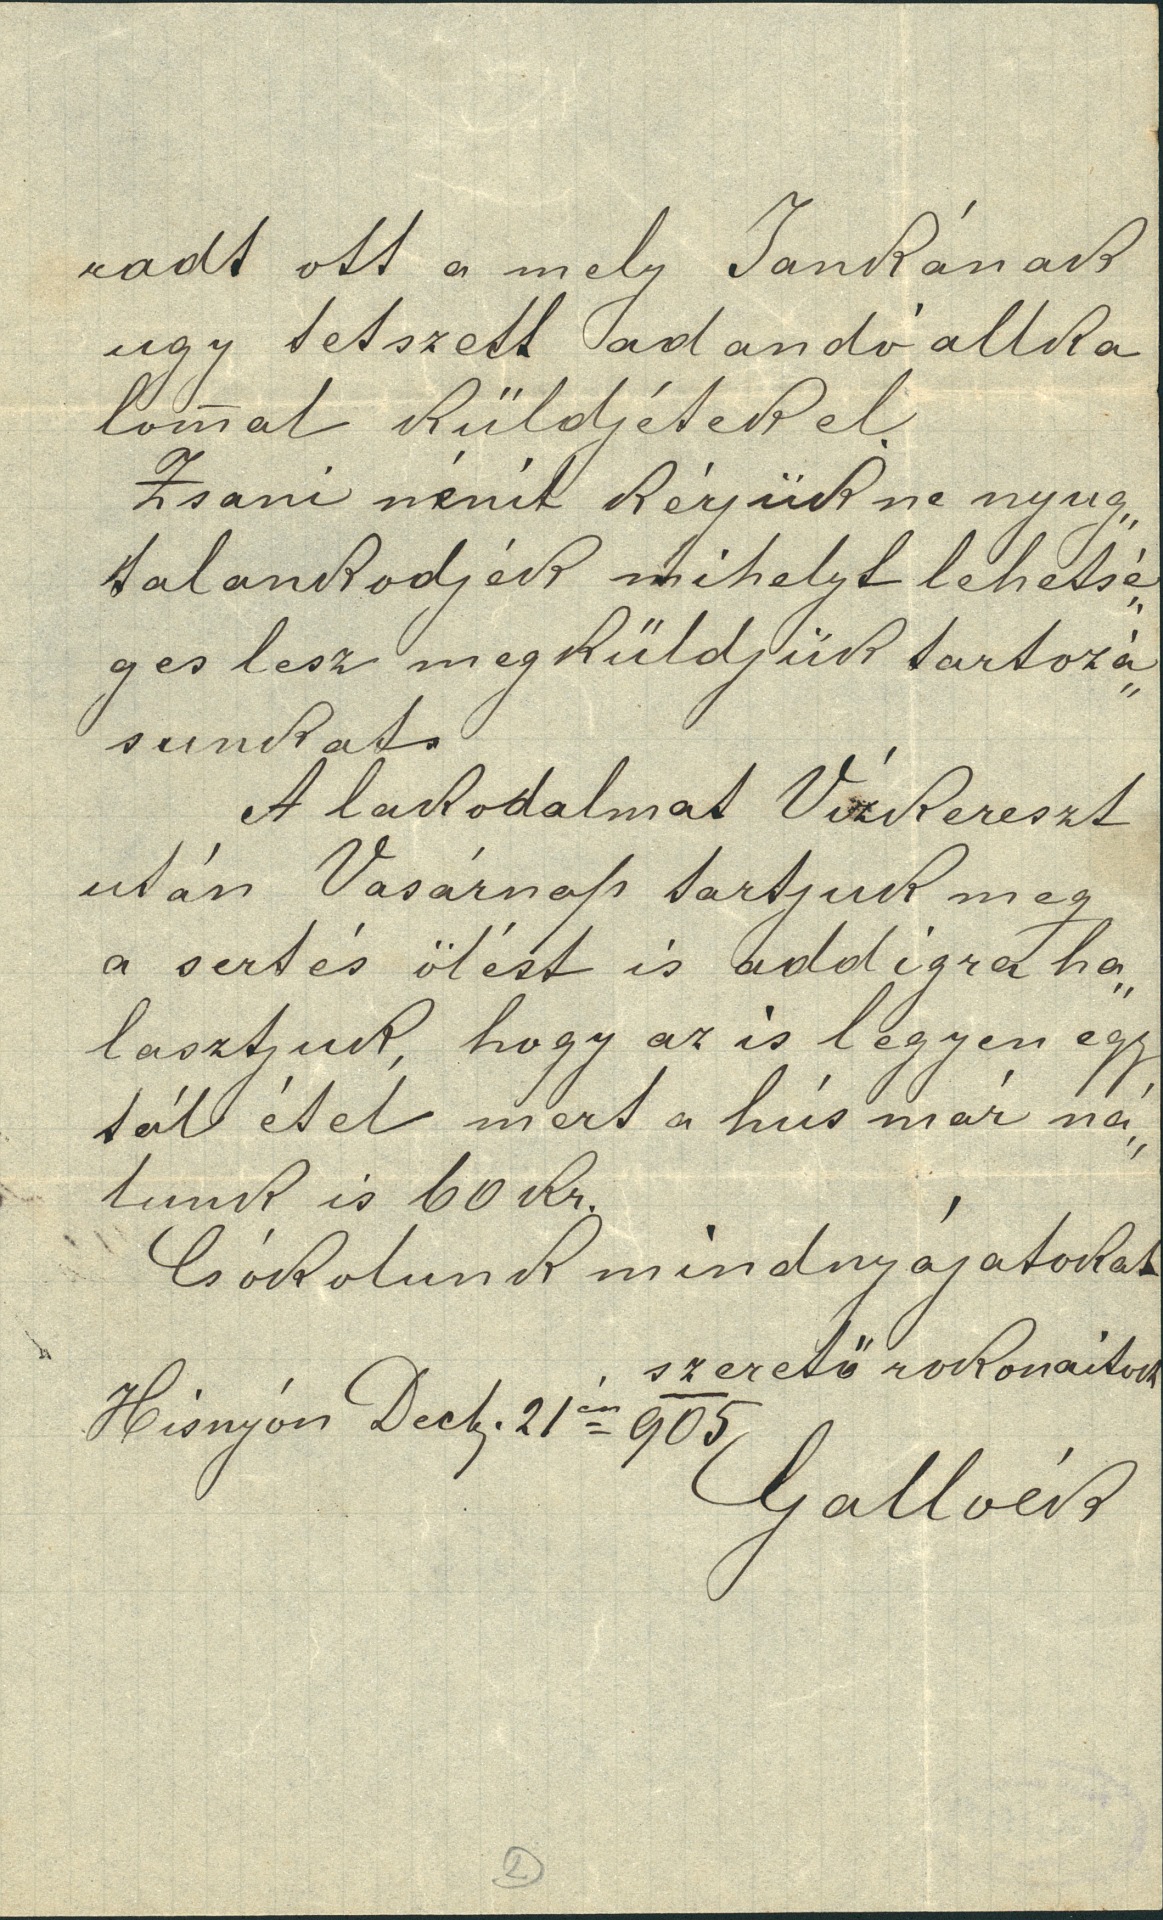 radt ott a mely Jankának
ugy tetszett adandó alka
lom̅al küldjétek el.
Zsani nénit kérjük ne nyug„
talankodjék mihelyt lehetsé„
ges lesz megküldjük tartozá„
sunkat.
A lakodalmat Vízkereszt
után Vasárnap tartjuk meg
a sertés ölést is addigra ha„
lasztjuk, hogy az is legyen egy
tál étel mert a hús már ná„
lunk is 60 kr.
Csókolunk mindnyájatokat
szerető rokonaitok
Hisnyón Decb. 21 én 905
Gallvék
2